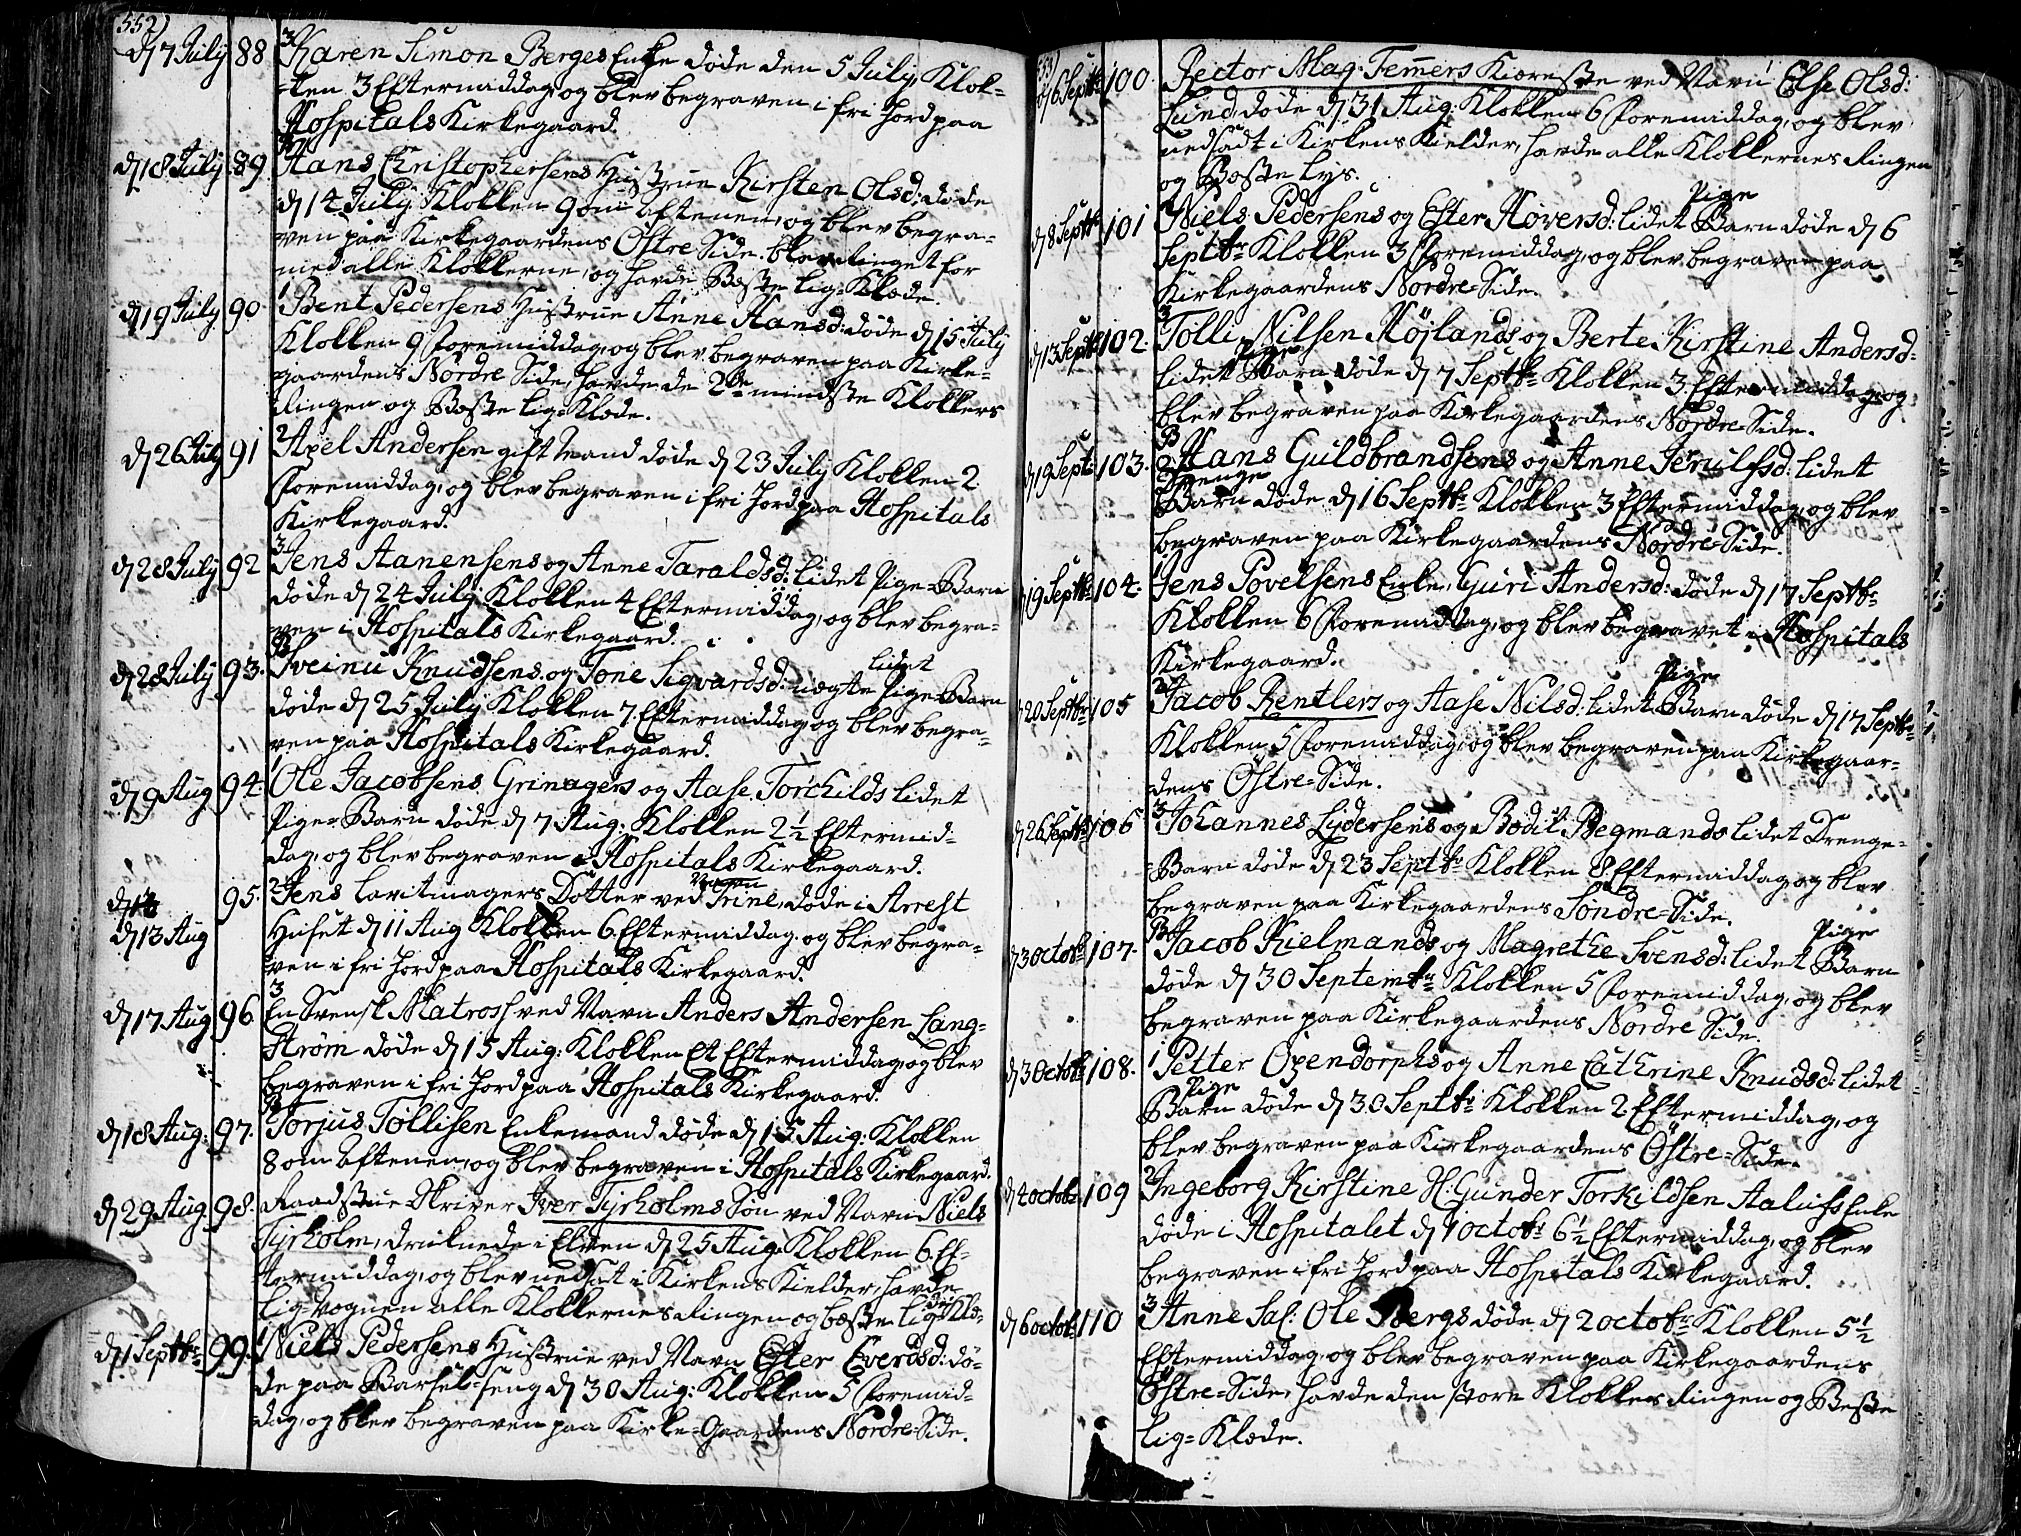 552)
d 7 July 88 3 Karen Simon Berges Enke døde den 5 July, Klok-
ken 3 Eftermiddag, og blev begraven i fri Jord paa
Hospitals Kirkegaard.
d 18 July. 89. Hans Christophersens Hustrue Kirsten Olsd: døde
d 14 July Klokken 9 om Aftenen, og blev begra-
ven paa Kirkegaardens Østre Side. blev ringet for
med alle Klokkerne, og havde Beste Lig-Klæde.
d 19 July. 90 1 Bent Pedersens Hustrue Anne Hansd: døde d 15 July
Klokken 9 Foremiddag, og blev begraven paa Kirke-
gaardens Nordre Side, havde de 2de mindste Klokkers
Ringen og Beste Lig-Klæde.
d 26 July 91 2 Axel Andersen gift Mand døde d 23 July Klokken 2
Foremiddag, og blev begraven i fri Jord paa Hospitals
Kirkegaard.
d 28 July 92 3 Jens Aanensens og Anne Taraldsd: lidet Pige-Barn
døde d 24 July Klokken 4 Eftermiddag, og blev begra-
ven i Hospitals Kirkegaard.
d 28 July 93. Sveinu Knudsens og Tone Sigvardsd: uægte lidet Pige-Barn
døde d 25 July Klokken 7 Eftermiddag, og blev begra-
ven paa Hospitals Kirkegaard.
d 9 Aug 94. 1 Ole Jacobsens Grinagers og Aase Torchilds lidet
Pige-Barn døde d 7 Aug: Klokken 2 1/2 Eftermid-
dag, og blev begraven i Hospitals Kirkegaard.
d 13 Aug 95. 2 Jens Lavitmagers Dotter ved Navn Trine, døde i Arrest
Huset d 11 Aug Klokken 6 Eftermiddag. og blev begra-
ven i fri Jord paa Hospitals Kirkegaard.
d 17 Aug 96 3 En Svensk Matros ved Navn Anders Andersen Lang-
strøm døde d 15 Aug: Klokken Et Eftermiddag, og blev
begraven i fri Jord paa Hospitals Kirkegaard.
d 18 Aug: 97. Torjus Tollisen Enkemand døde d 15 Aug: Klokken
8 om Aftenen, og blev begraven i Hospitals Kirkegaard.
d 29 Aug. 98. Raadstue Skriver Iver Tyrholms Søn ved Navn Niels
Tyrholm, druknede i Elven d 25 Aug: Klokken 6 Ef-
termiddag, og blev nedsat i Kirkens Kielder, havde
Lig-Vognen alle Klokkernes Ringen og beste Lig-Klæ-
de
d 1 Septbr: 99. 1 Niels Pedersens Hustrue ved Navn Ester Everdsd: dø-
de paa Barsel-Seng d 30 Aug: Klokken 5 Foremid-
dag, og blev begraven paa Kirke-Gaardens Nordre-Side.
553)
d 6 Septbr 100. Rector Mag: Temmers Kiæreste ved Navn Else Olsd:
Lund, døde d 31 Aug: Klokken 6 Foremiddag, og blev
nedsadt i Kirkens Kielder, havde alle Klokkernes Ringen
og Beste Lys.
d 8 Septbr 101 Niels Pedersens og Ester Hoversd: lidet Pige Barn døde d 6
Septbr Klokken 3 Foremiddag, og blev begraven paa
Kirkegaardens Nordre-Side.
d 13 Septbr 102. 3 Tolli Nilsen Højlands og Berte Kirstine Andersd-
lidet Pige Barn døde d 7 Septbr Klokken 3 Eftermiddag, og
blev begraven paa Kirkegaardens Nordre-Side.
d 19 Septbr 103. Hans Guldbrandsens og Anne Jerulfsd: lidet
Drenge Barn døde d 16 Septbr Klokken 3 Eftermiddag, og blev
begraven paa Kirkegaardens Nordre-Side.
d 19 Septbr 104. 1 Jens Povelsens Enke, Guri Andersd: døde d 17 Septbr
Klokken 6 Foremiddag, og blev begravet i Hospitals
Kirkegaard.
d 20 Septbr 105 2 Jacob Rentlers og Aase Nilsd: lidet Pige Barn døde d 17 Septbr
Klokken 5 Foremiddag, og blev begraven paa Kirkegaar-
dens Østre-Side.
d 26 Septbr 106 3 Johannes Lydersens og Bodil Begmands lidet Drenge-
Barn døde d 23 Septbr Klokken 8 Eftermiddag, og blev
begraven paa Kirkegaardens Søndre-Side.
d 3 Octob: 107. Jacob Kielmands og Magrethe Svensd: lidet Pige Barn
døde d 30 Septembr Klokken 5 Foremiddag, og blev
begraven paa Kirkegaardens Nordre Side.
d 3 Octob: 108. 1 Petter Oxendorphs og Anne Cathrine Knudsd: lidet
Pige Barn døde d 30 Septbr Klokken 2 Eftermiddag, og
blev begraven paa Kirkegaardens Østre-Side.
d 4 octob: 109 2 Ingeborg Kirstine H: Gunder Torkildsen Aalufs Enke
døde i Hospitalet d 1 octobr 6 1/2 Eftermiddag, og blev
begraven i fri Jord paa Hospitals Kirkegaard.
d 6 octob: 110 3 Anne Sal: Ole Bergs døde d 2 octobr Klokken 5 1/2
Eftermiddag, og blev begraven paa Kirkegaardens
Østre-Side, havde den store Klokkes Ringen og Beste
Lig-Klæde.